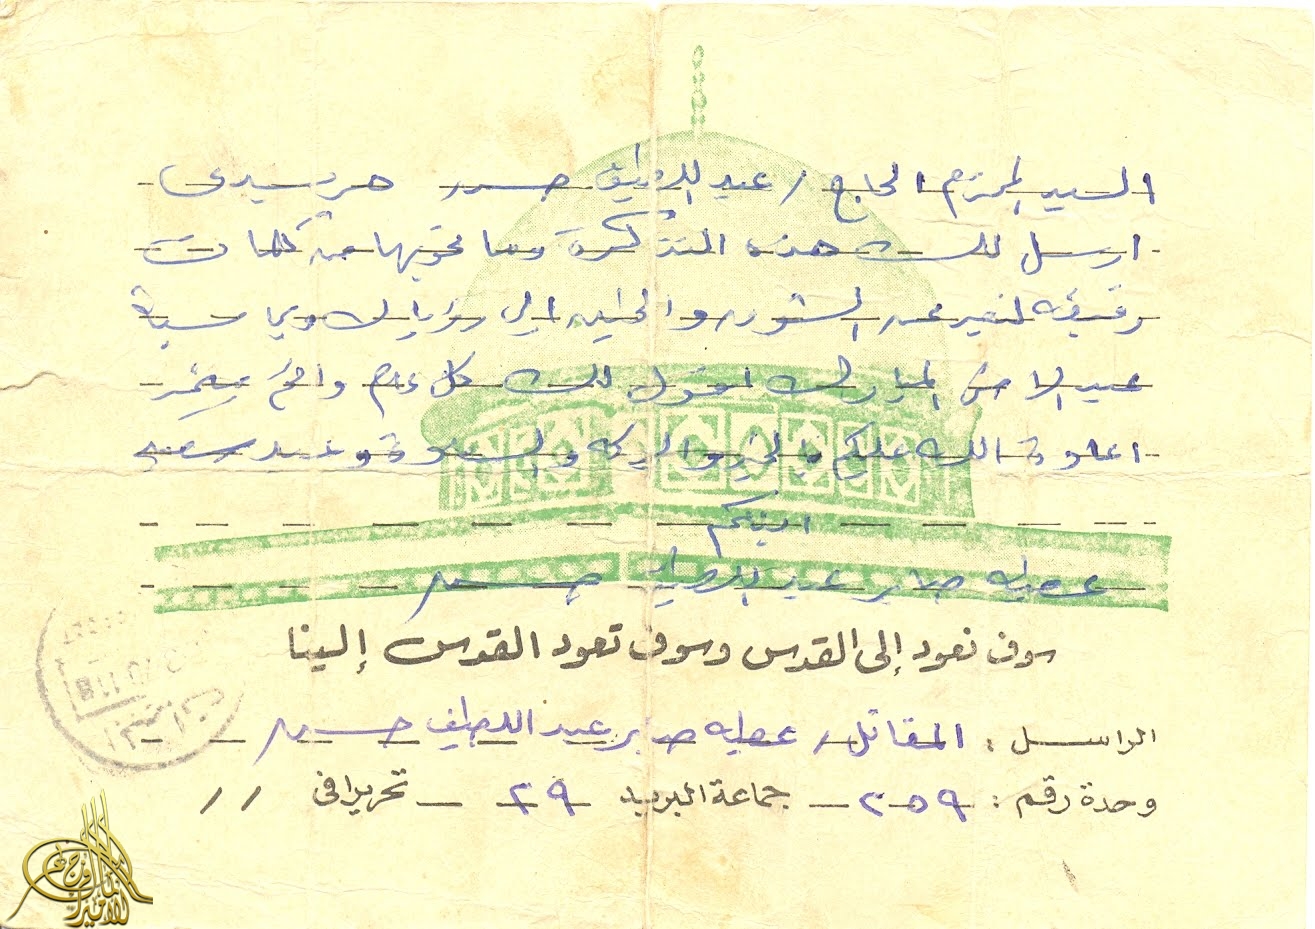 السيد المحترم الحاج / عبد اللطيف حسن هرديدى
ارسل لك هذه التذكرة وما تحويها من كلمات
رقيقه لتعبر عن الشوق والحنين الى رؤياك وبمناسبة
عيد الاضحى المبارك اقول لك كل عام وانتم بخير
اعادة الله عليكم بالخير والبركه والسعادة وعيد سعيد
ابنكم
عطيه صابر عبد اللطيف حسن
سوف نعود إلى القدس وسوف تعود القدس إلينا
الراسل : المقاتل / عطيه صابر عبد اللطيف حسن
وحدة رقم : ٢٥٩ جماعة البريد ٢٩ تحريرا فى / /